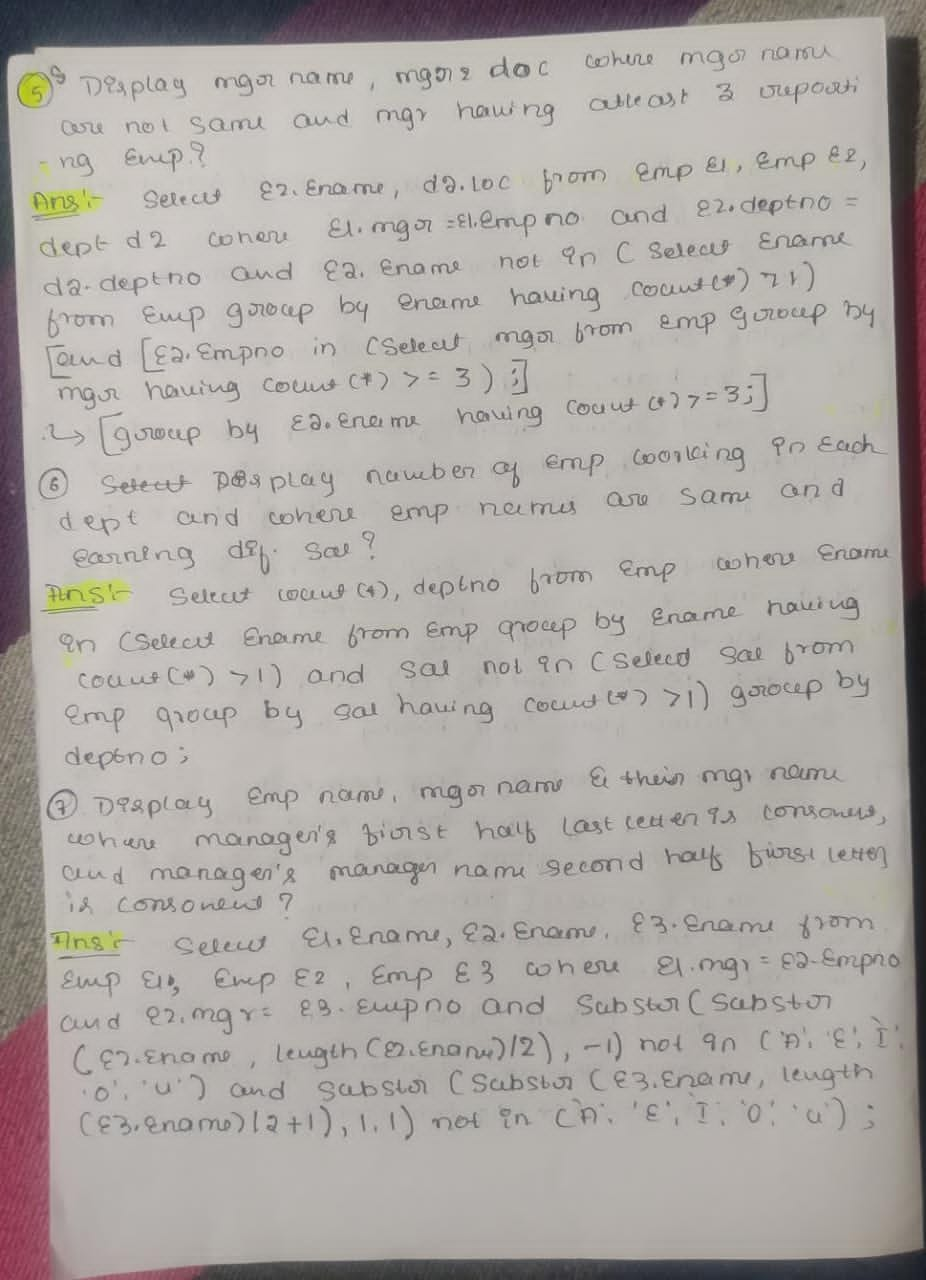 5 Display mgr name, mgr's loc where mgr name
are not same and mgr having atleast 3 reporti
-ng Emp.?
Ans:- Select E2.Ename, d2.loc from Emp E1, Emp E2,
dept d2 where E1.mgr = E1.empno and E2.deptno =
d2.deptno and E2.Ename not in (Select Ename
from Emp group by ename having count(*) >1)
[and [E2.Empno in (Select mgr from emp group by
mgr having count (*) >= 3);]
2→ [group by E2.Ename having count (*) >= 3;]
6 Display number of Emp working in Each
dept and where emp names are same and
earning dif. Sal?
Ans:- Select count (*), deptno from Emp where Ename
in (Select Ename from Emp group by Ename having
count(*) >1) and sal not in (Select sal from
Emp group by sal having count(*) >1) group by
deptno;
7 Display Emp name, mgr name & their mgr name
where manager's first half last letter is consonent,
and manager's manager name second half first letter
is consonent?
Ans:- Select E1.Ename, E2.Ename, E3.Ename from
Emp E1, Emp E2, Emp E3 where E1.mgr = E2.Empno
and E2.mgr = E3.empno and Substr(Substr
(E2.Ename, length(E2.Ename)/2), -1) not in ('A', 'E', 'I',
'O', 'U') and Substr (Substr (E3.Ename, length
(E3.ename)/2+1), 1,1) not in ('A', 'E', 'I', 'O', 'U');